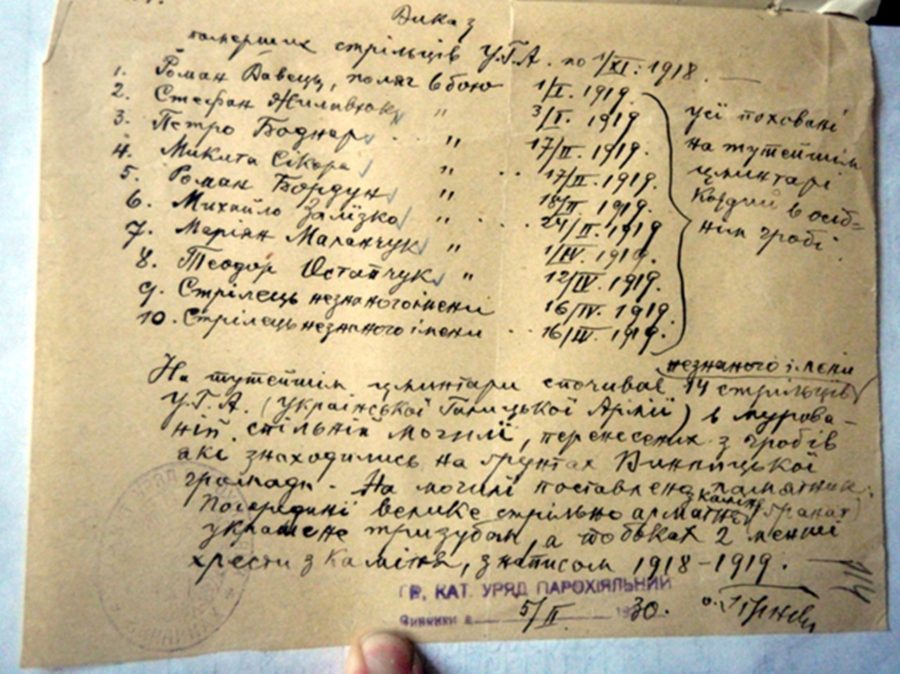 Виказ
померших стрільців У.Г.А. по 1/XI. 1918. —
1. Роман Кавець, поляг в бою 1/I. 1919.
2. Стефан " 3/I. 1919
3. Петро Боднар " 17/II. 1919.
4. Микита Сікора " 17/II. 1919.
5. Роман Бордун " 18/II 1919.
6. Михайло Залізко " 24/II. 1919.
7. Маріян Маланчук " 1/IV. 1919.
8. Теодор Остапчук " 12/IV. 1919.
9. Стрілець незнаного імени 16/IV. 1919.
10. Стрілець незнаного імени 16/III. 1919.
усі поховані
на тутейшім
цминтарі
Кождий в осіб-
нім гробі.
незнаного імени
На тутейшім цминтари спочиває 14 стрільців
У.Г.А. (Української Галицької Армії) в мурова-
ній спільній могилі, перенесених з гробів
які знаходились на ґрунтах Винницької
громади. На могилі поставлено памятник.
з каміня
Посередині велике стрільно арматнє (гранат)
украшене тризубом, а по боках 2 менші
хрести з каміня, з написом 1918–1919. —
ГР. КАТ. УРЯД ПАРОХІЯЛЬНИЙ
Винники 5/II 1930. о.